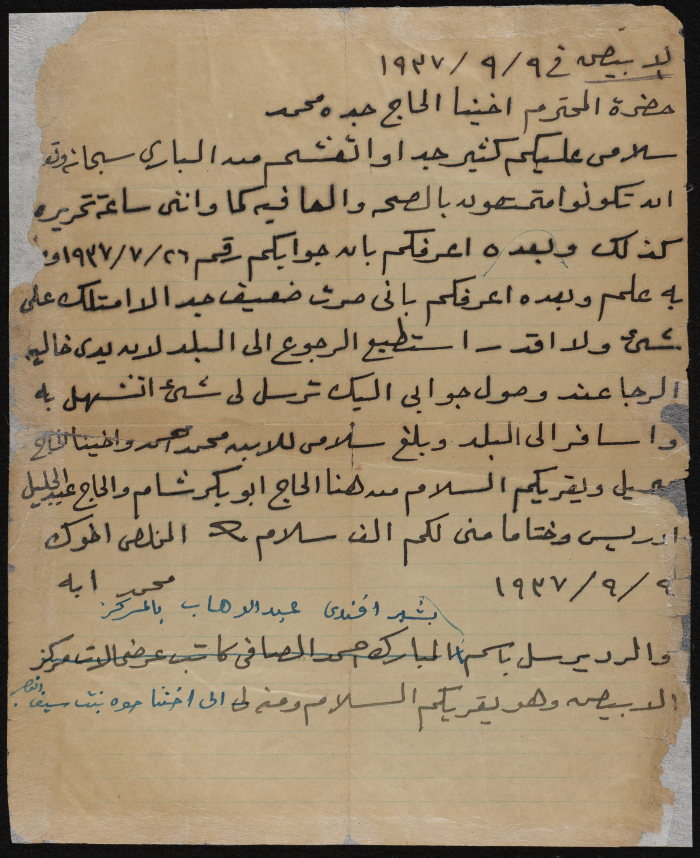 لابيض في ٩/٩/١٩٣٧
حضرة المحترم اخينا الحاج حبده محمد
سلامى عليكم كثير جدا واتعشم من البارى سبحانه وتع
ان تكونوا متمتعون بالصحه والعافيه كما واننى ساعة تحريره
كذلك وبعده اعرفكم بان جوابكم رقم ٢٦/٧/١٩٣٧ و
به علم وبعده اعرفكم بانى صرت ضعيف جد الا امتلك على
شئ ولا اقدر استطيع الرجوع الى البلد لان يدى خاليه
الرجا عند وصول جوابى اليك ترسل لى شئ اتسهل به
واسافر الى البلد وبلغ سلامى للابن محمد احمد واخينا الحاج
ويقريكم السلام من هنا الحاج ابو بكر شام والحاج عبد الجليل
ادريس وختاما منى لكم الف سلام المخلص اخوك
٩/٩/١٩٣٧ محمد ابه
بشير افندى عبد الوهاب بالمركز
والرد يرسل باسم المبارك حمد الصافى كاتب عرضحالات مركز
الابيض وهو يقريكم السلام ومنه الى اختنا حوه بنت سيف